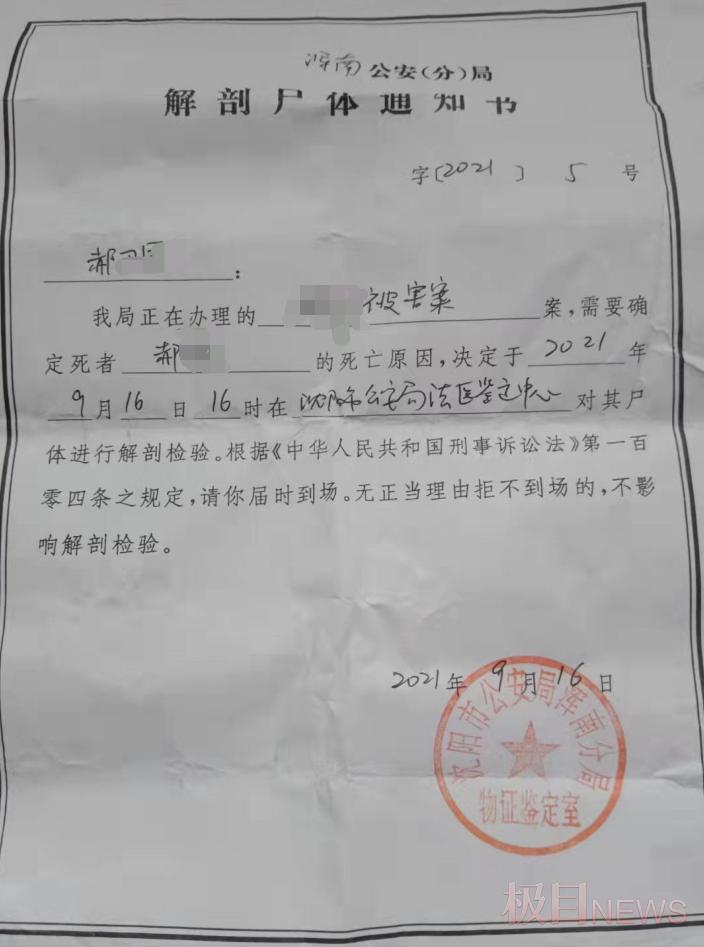 浑南公安(分)局
解剖尸体通知书
字[2021]5号
郝:
我局正在办理的 被害案 案,需要确
定死者 郝 的死亡原因,决定于 2021 年
9月16日16时在沈阳市公安局法医鉴定中心对其尸
体进行解剖检验。根据《中华人民共和国刑事诉讼法》第一百
零四条之规定,请你届时到场。无正当理由拒不到场的,不影
响解剖检验。
2021年9月16日
沈阳市公安局浑南分局
物证鉴定室
极目NEWS